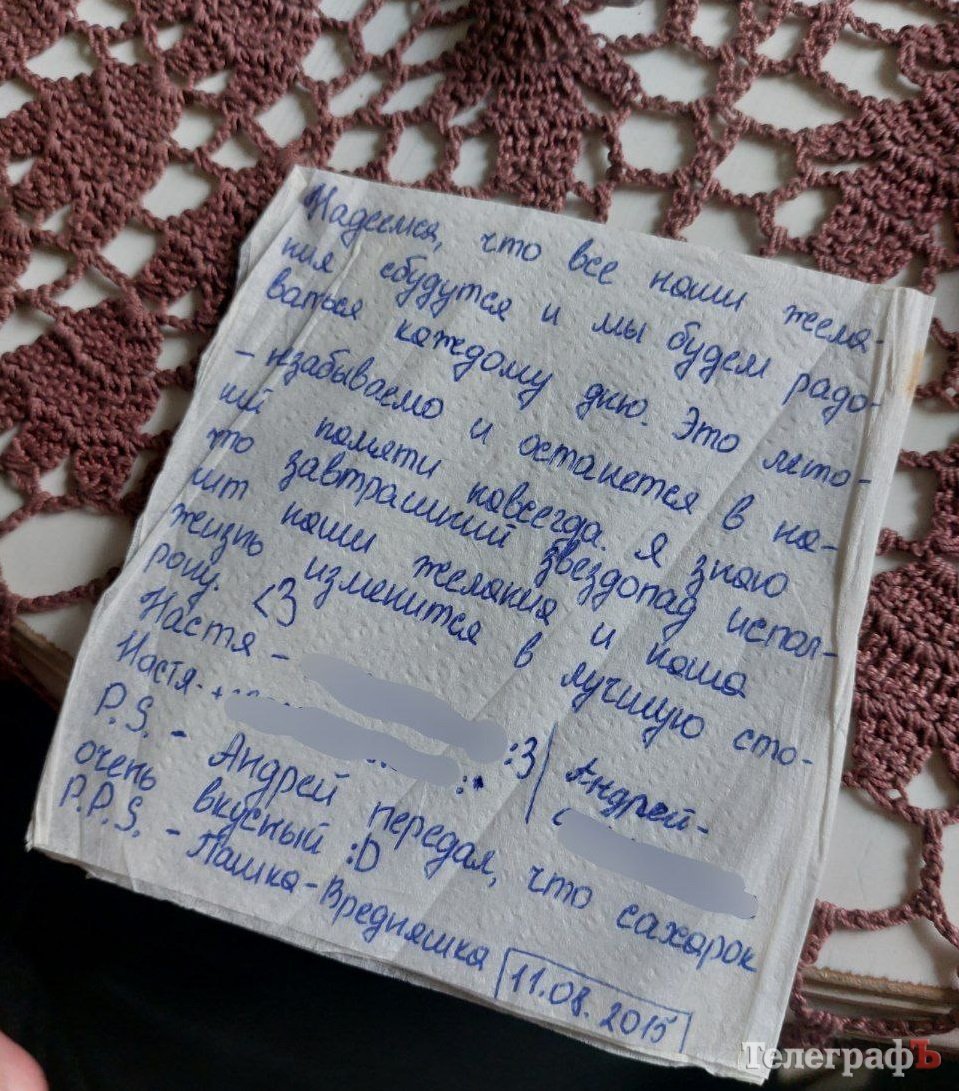 Надеемся, что все наши жела-
ния сбудутся и мы будем радо-
ваться каждому дню. Это лето-
- нзабываемо и останется в на-
ший помяти навсегда. Я знаю
что завтрашний звездопад испол-
нит наши желания и наша
жизнь изменится в лучшую сто-
рону. <3
Настя -
Настя- +
:3
Андрей-
P.S. - Андрей передал, что сахарок
очень вкусный :D
P.P.S. - Пашка-Вредняшка
11.08.2015
ТелеграфЪ